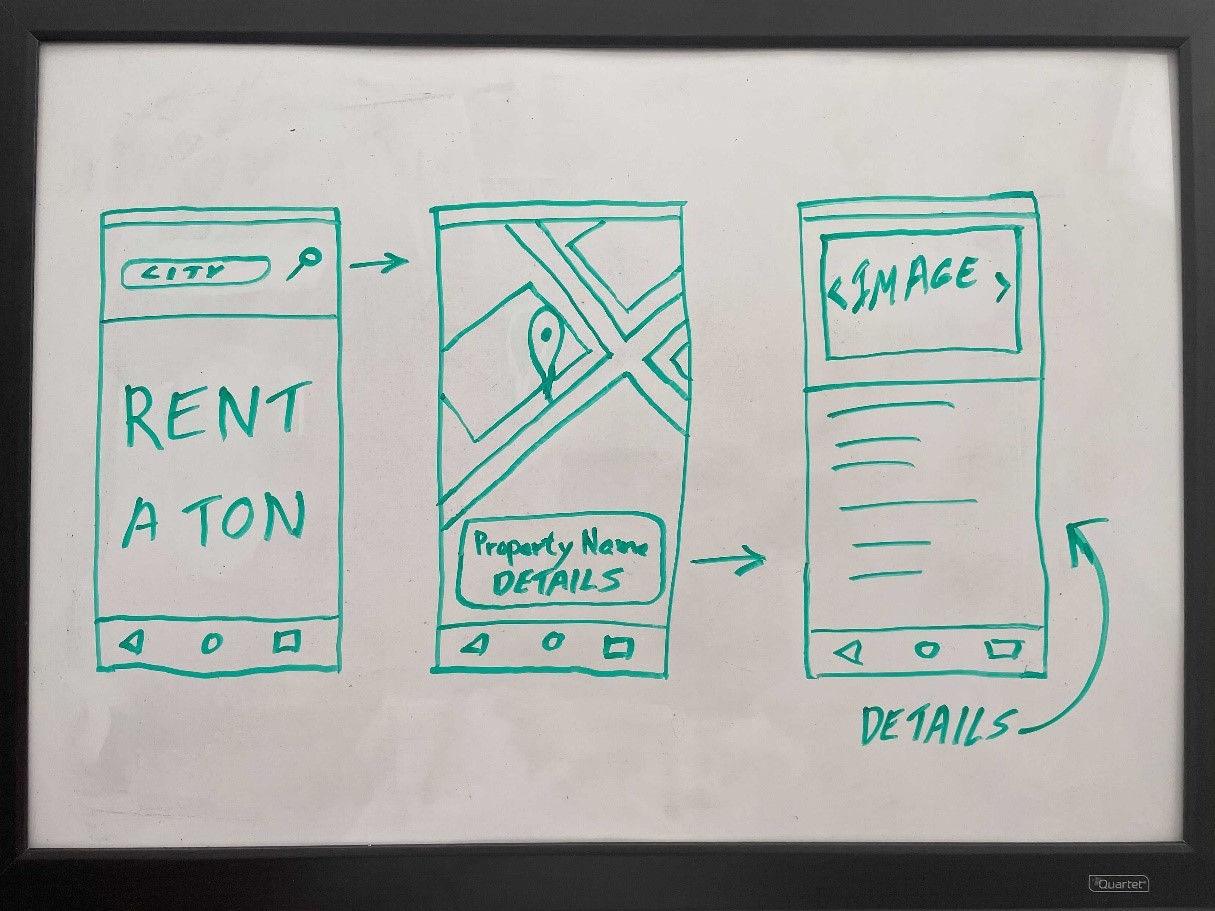 CITY
RENT
A TON
Property Name
DETAILS
<IMAGE>
DETAILS
Quartet